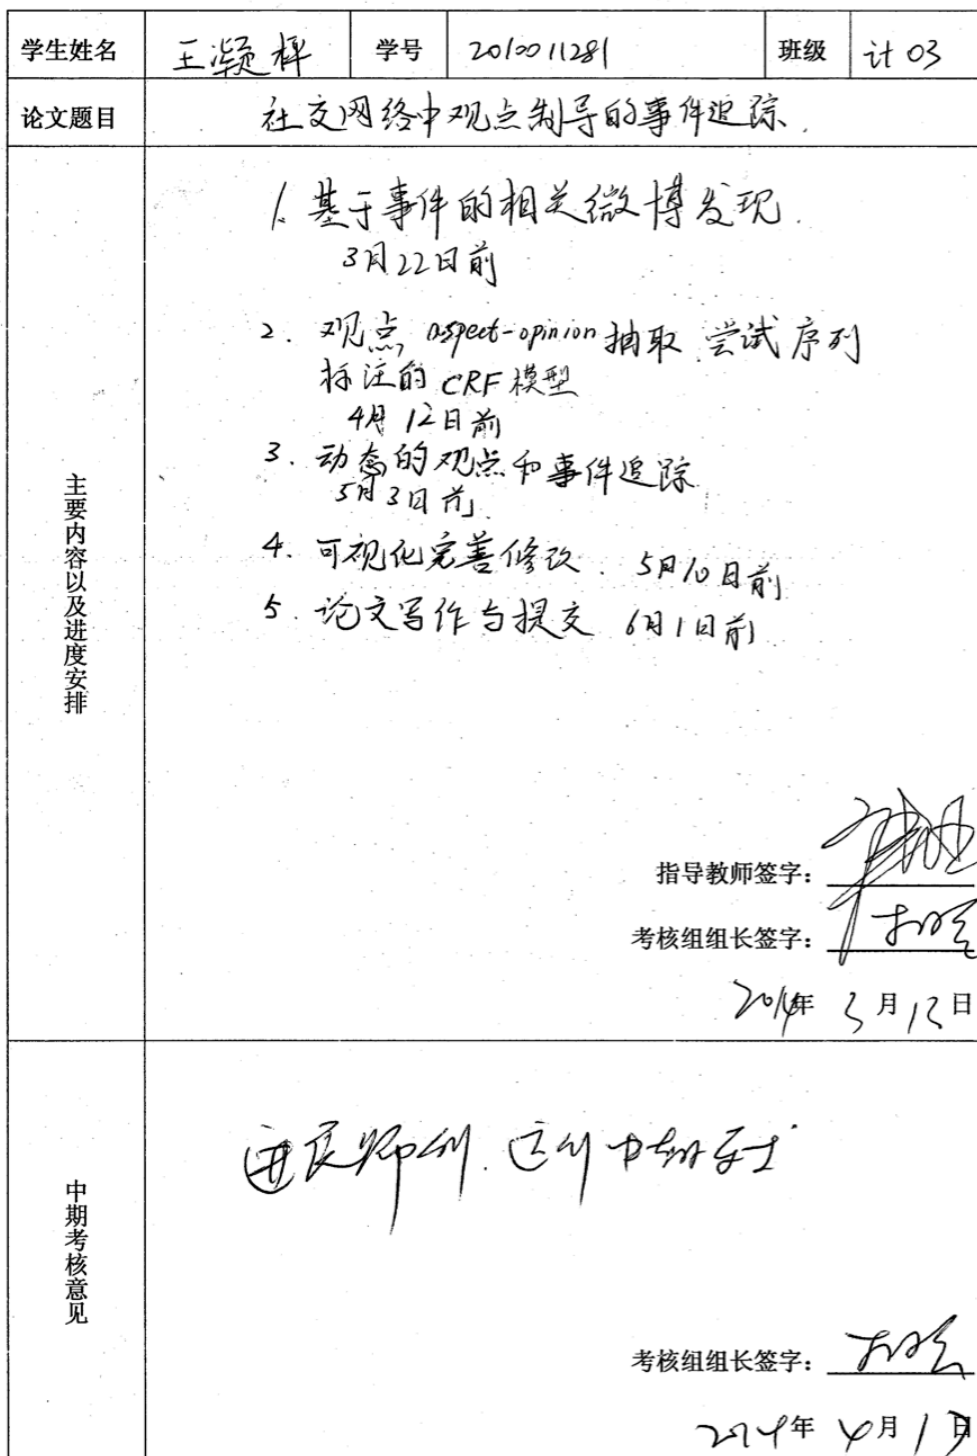 学生姓名 王凝枰 学号 2010011281 班级 计03
论文题目 社交网络中观点制导的事件追踪.
主要内容以及进度安排
1. 基于事件的相关微博发现.
3月22日前
2. 观点 aspect-opinion 抽取 尝试序列
标注的 CRF 模型
4月12日前
3. 动态的观点和事件追踪
5月3日前.
4. 可视化完善修改. 5月10日前
5. 论文写作与提交 6月1日前
指导教师签字:
考核组组长签字:
2014年 3月13日
中期考核意见
进展顺利. 达到中期要求
考核组组长签字:
2014年 4月1日